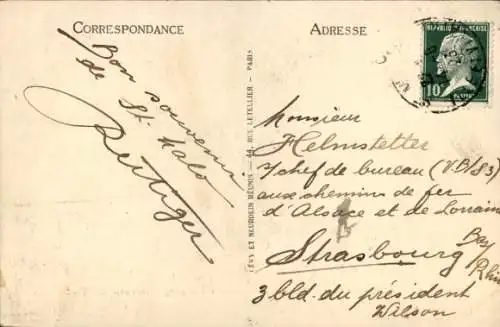 CORRESPONDANCE
ADRESSE
REPUBLIQUE FRANÇAISE
10
Bon souvenir
de St. Malo
LEVY ET NEURDEIN RÉUNIS — 44, RUE LETELLIER — PARIS
Monsieur
Helmstetter
s/chef de bureau (VB/S3)
aux chemins de fer
d'Alsace et de Lorraine
Strasbourg
Bas
Rhin
3 bld. du président
Wilson